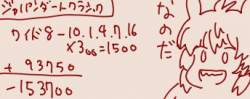 ジャイアンダートクラシック
ワイド8-10.1.9.7.16
×300=1500
+ 93750
-153700
なのだ